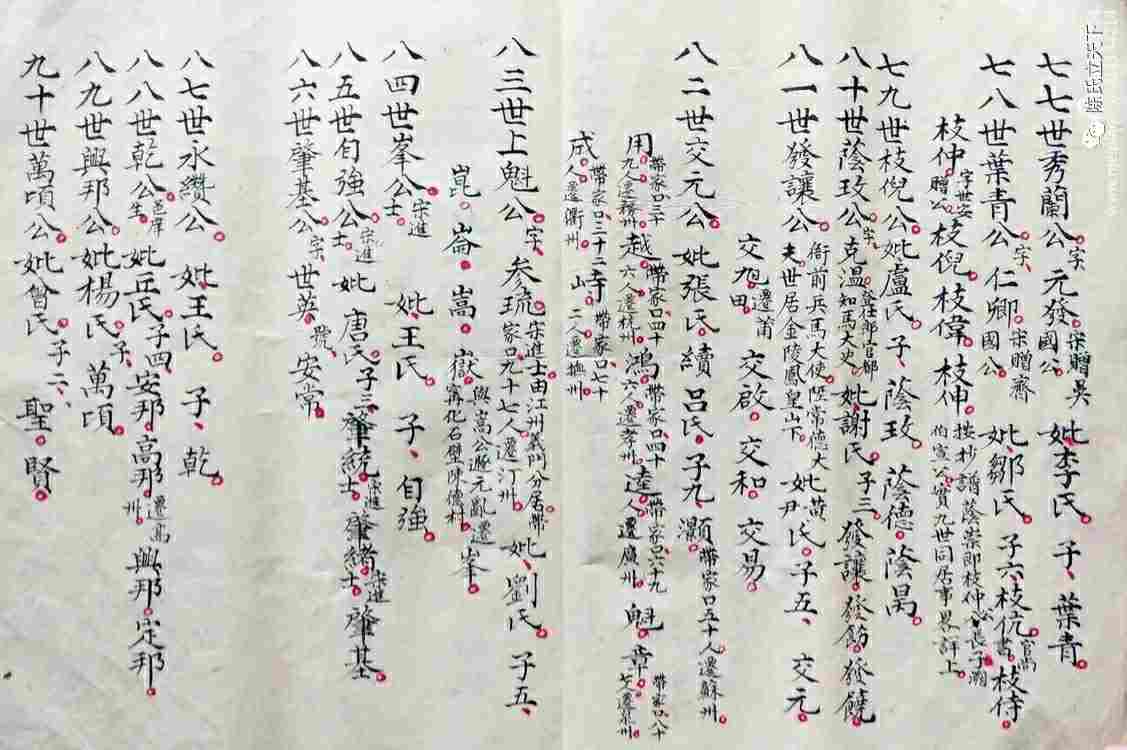 七七世秀蘭公。字、元發。宋贈吳國公。妣李氏。子、葉青。
七八世葉青公。字、仁卿。宋贈齊國公。妣鄒氏。子六、枝伉。官尚書。枝侍。
枝仲。字世安贈公。枝倪。枝偉。枝伸。按抄譜蔭崇即枝仲公長子溯伯宣公實九世同居事畧詳上。
七九世枝倪公。妣盧氏。子、蔭玫。蔭德。蔭昺。
八十世蔭玫公。字、克温。妣謝氏。子三、發讓。發飭。發饒。
八一世發讓公。衙前兵馬大使陞常德大夫世居金陵鳳皇山下。妣尹氏。子五、交元。
交旭。遷莆田。交啟。交和。交易。
八二世交元公。妣張氏。續呂氏。子九、灝。帶家口五十人遷蘇州。
用。越。帶家口四十六人遷杭州。鴻。帶家口四十六人遷孝州。逵。魁。章。
成。帶家口三十二人遷衢州。峙。帶家口七十二人遷撫州。
八三世上魁公。字、參琉。宋進士由江州義門分居帶家口九十七人遷汀州。妣、劉氏。子五、
崑。崙。嵩。嶽。與嵩公遯元亂遷寗化石壁陳德村。峯。
八四世峯公。宋進士。妣、王氏。子、自強。
八五世自強公。宋進士。妣唐氏。子三、肇統。宋進士。肇緒。宋進士。肇基。
八六世肇基公。字、世英。號、安常。
八七世永纘公。妣、王氏。子、乾。
八八世乾公。邑庠生。妣丘氏。子四、安邦。高邦。遷高州。興邦。定邦。
八九世興邦公。妣楊氏。子、萬頃。
九十世萬頃公。妣曾氏。子二、聖。賢。
陳氏立天下